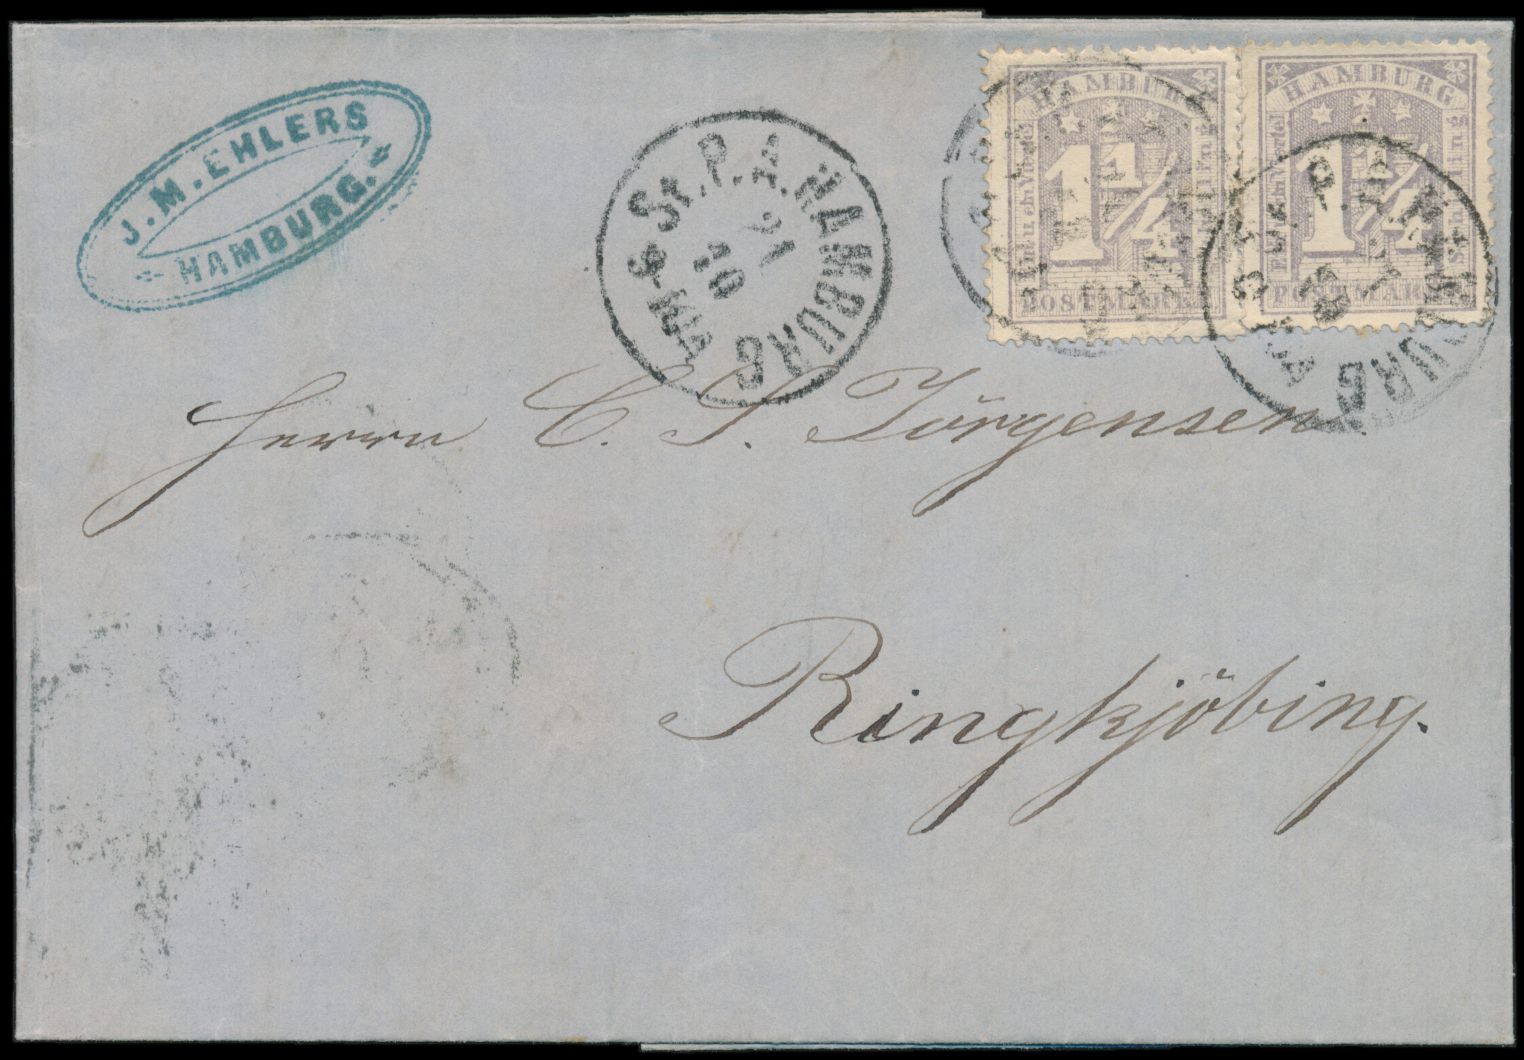 J. M. EHLERS
HAMBURG.
St. P. A. HAMBURG
21
10
HAMBURG
1¼
POSTMARKE
HAMBURG
1¼
Schilling
POSTMARKE
Herrn C. S. Jörgensen.
Ringkjöbing.